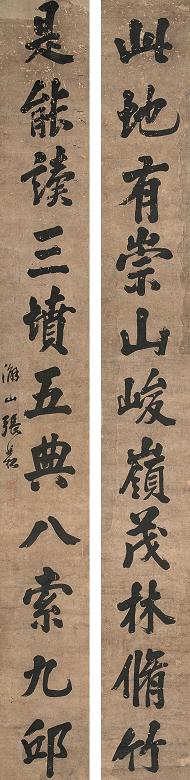 此地有崇山峻嶺茂林脩竹
是能讀三墳五典八索九邱